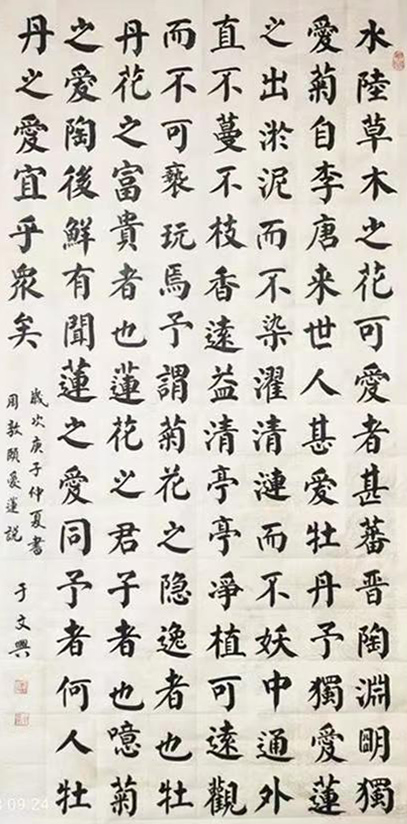 水陸草木之花可愛者甚蕃晋陶淵明獨
愛菊自李唐来世人甚愛牡丹予獨愛蓮
之出淤泥而不染濯清漣而不妖中通外
直不蔓不枝香遠益清亭亭凈植可遠觀
而不可褻玩焉予謂菊花之隐逸者也牡
丹花之富貴者也蓮花之君子者也噫菊
之愛陶後鮮有聞蓮之愛同予者何人牡
丹之愛宜乎衆矣
歲次庚子仲夏書
周敦頤愛蓮説 于文興
09:24